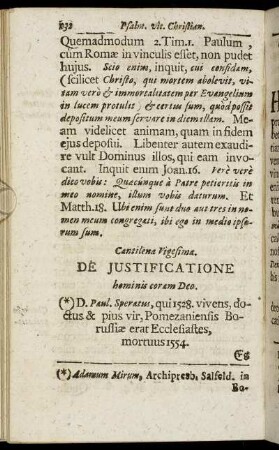 292 Psalm. vit. Christian.
Quemadmodum 2. Tim. 1. Paulum,
cum Romæ in vinculis esset, non pudet
hujus. Scio enim, inquit, cui confidam,
(scilicet Christo, qui mortem abolevit, vi-
tam verò & immortalitatem per Evangelium
in lucem protulit) & certus sum, quòd possit
depositum meum servare in diem illam. Me-
am videlicet animam, quam in fidem
ejus deposui. Libenter autem exaudi-
re vult Dominus illos, qui eam invo-
cant. Inquit enim Joan. 16. Verè verè
dico vobis: Quæcunque à Patre petieritis in
meo nomine, illum vobis daturum. Et
Matth. 18. Ubi enim sunt duo aut tres in no-
men meum congregati, ibi ego in medio ipso-
rum sum.
Cantilena Vigesima.
DE JUSTIFICATIONE
hominis coram Deo.
(*) D. Paul. Speratus, qui 1528. vivens, do-
ctus & pius vir, Pomezaniensis Bo-
russiæ erat Ecclesiastes,
mortuus 1554.
Es
(*) Adamum Mirum, Archipresb. Salfeld. in
Bo-